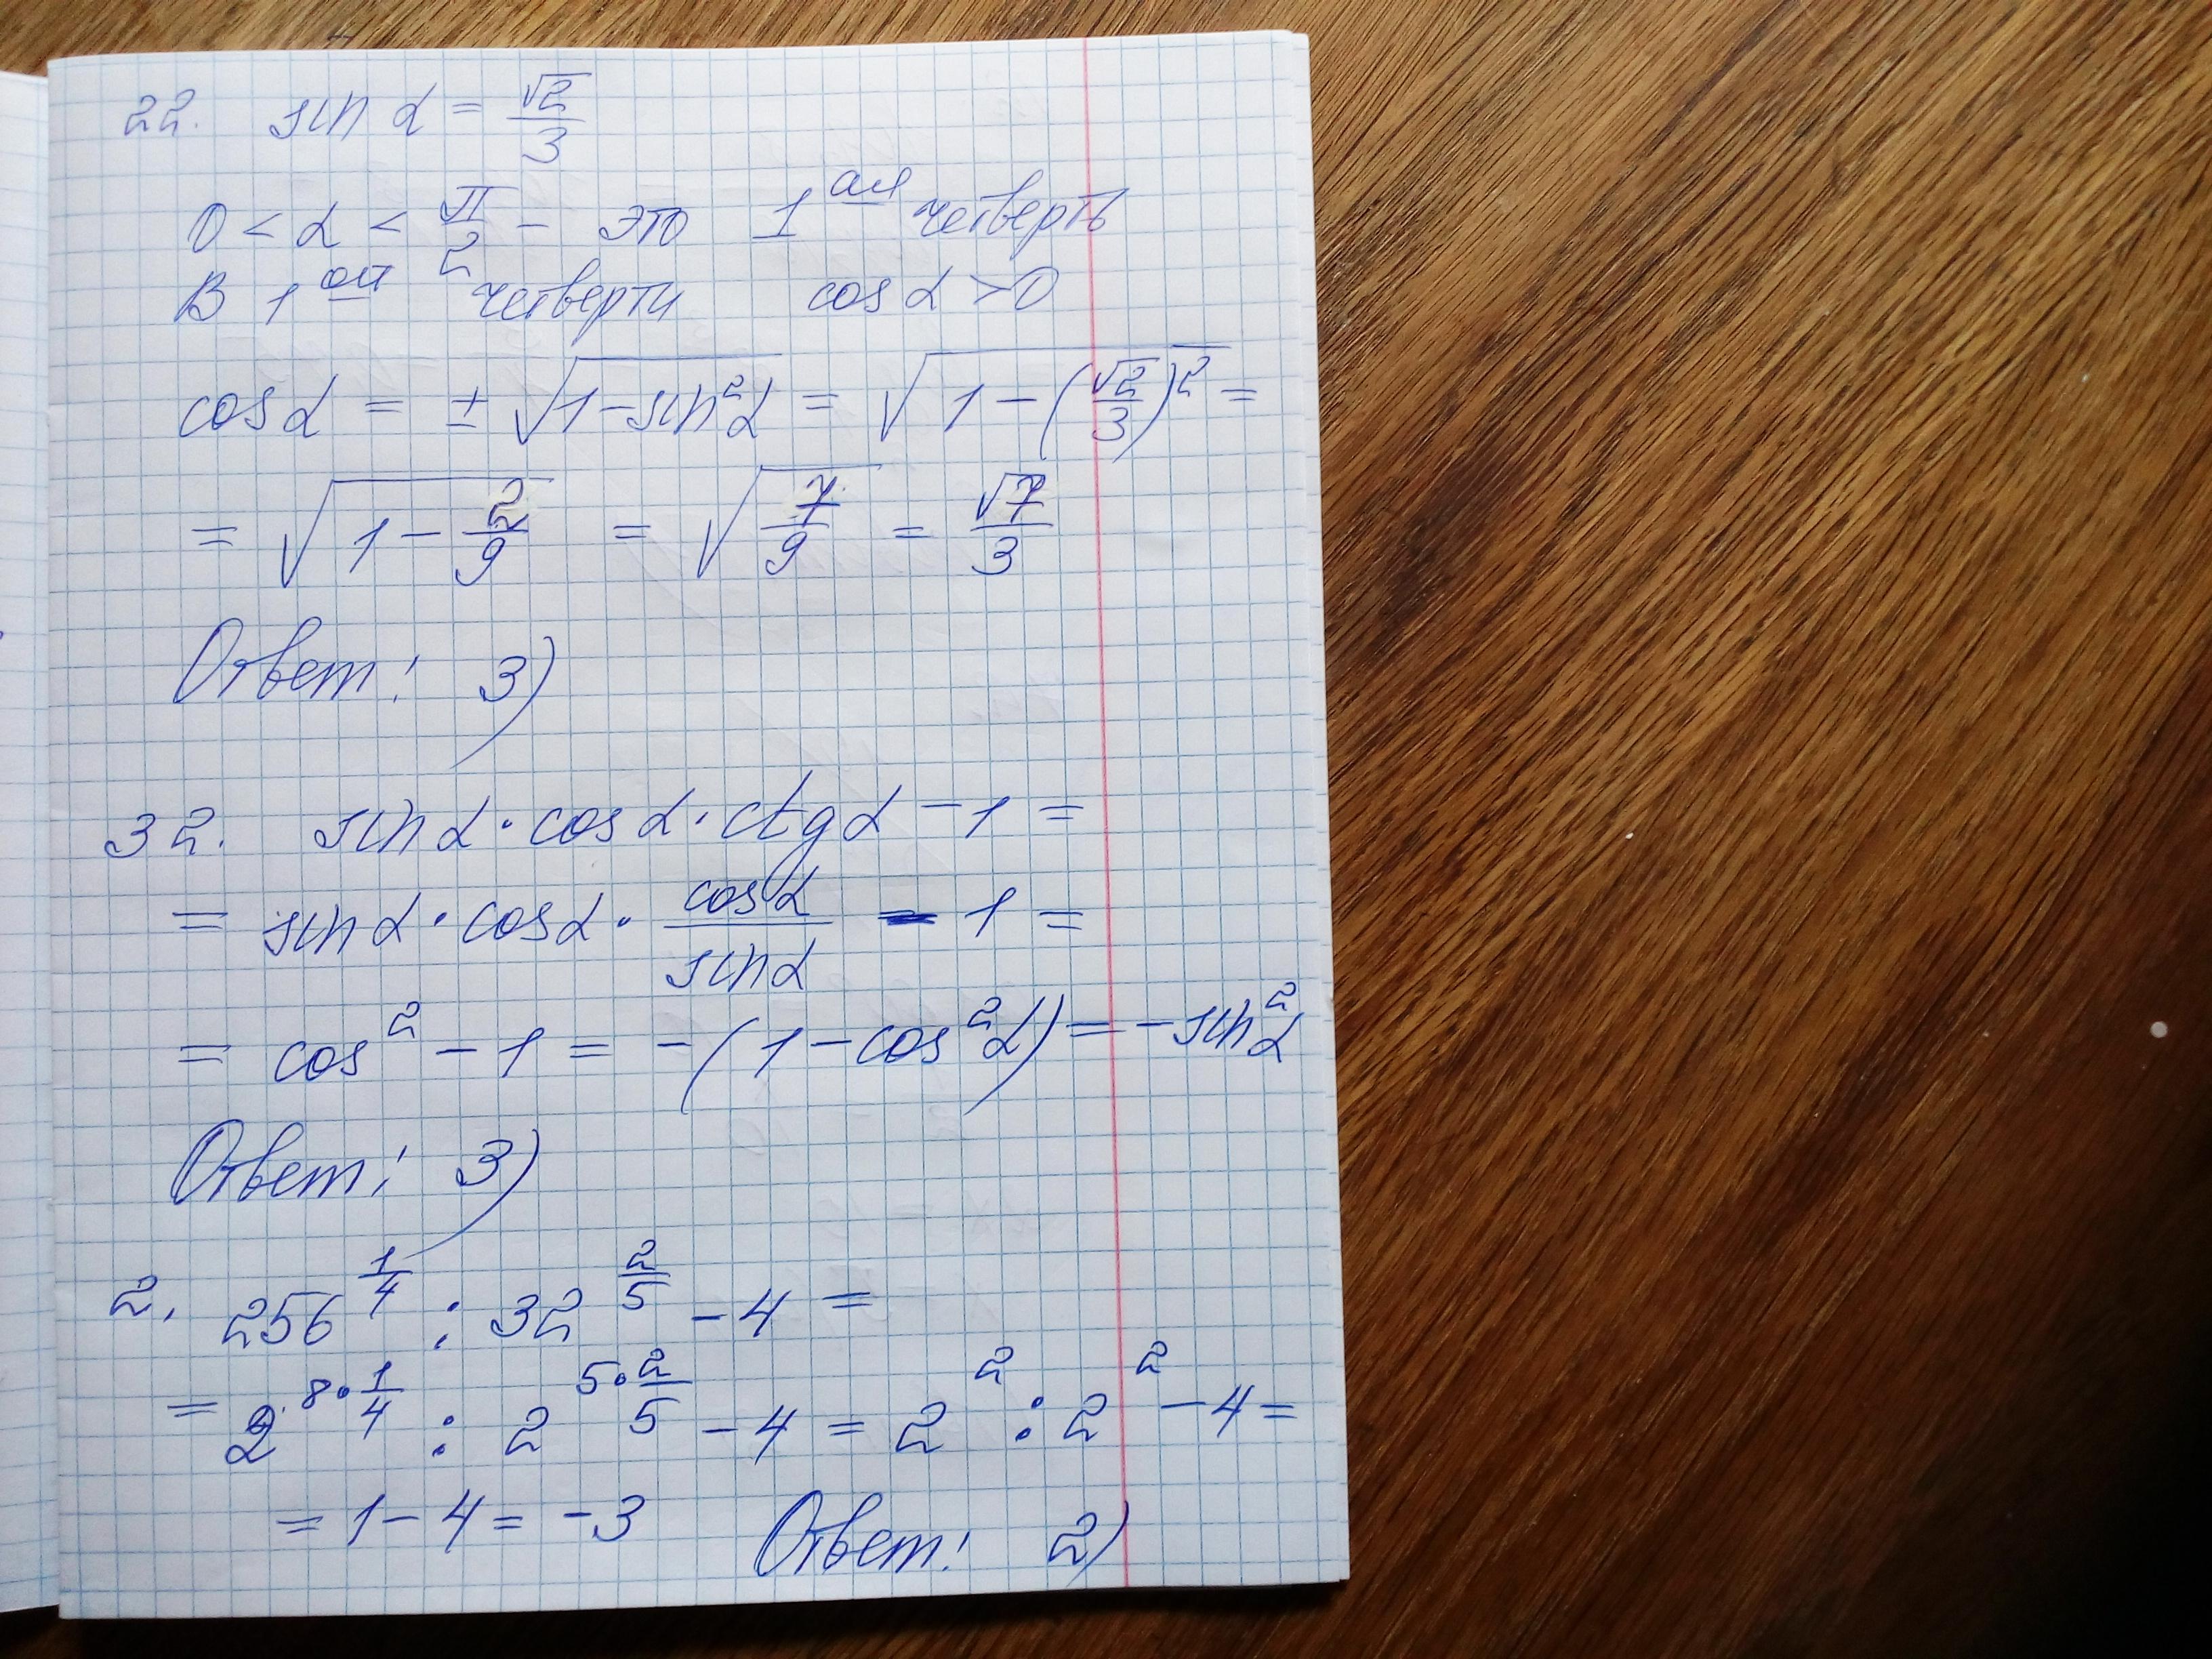 22. sin α = √2/3
0 < α < π/2 – это 1ая четверть
В 1ой четверти cos α > 0
cos α = ± √(1 – sin²α) = √(1 – (√2/3)²) =
= √(1 – 2/9) = √(7/9) = √7/3
Ответ: 3)
32. sin α · cos α · ctg α – 1 =
= sin α · cos α · cos α/sin α – 1 =
= cos² – 1 = – (1 – cos²α) = – sin²α
Ответ: 3)
2. 256^(1/4) : 32^(2/5) – 4 =
= 2^(8·1/4) : 2^(5·2/5) – 4 = 2² : 2² – 4 =
= 1 – 4 = –3 Ответ: 2)